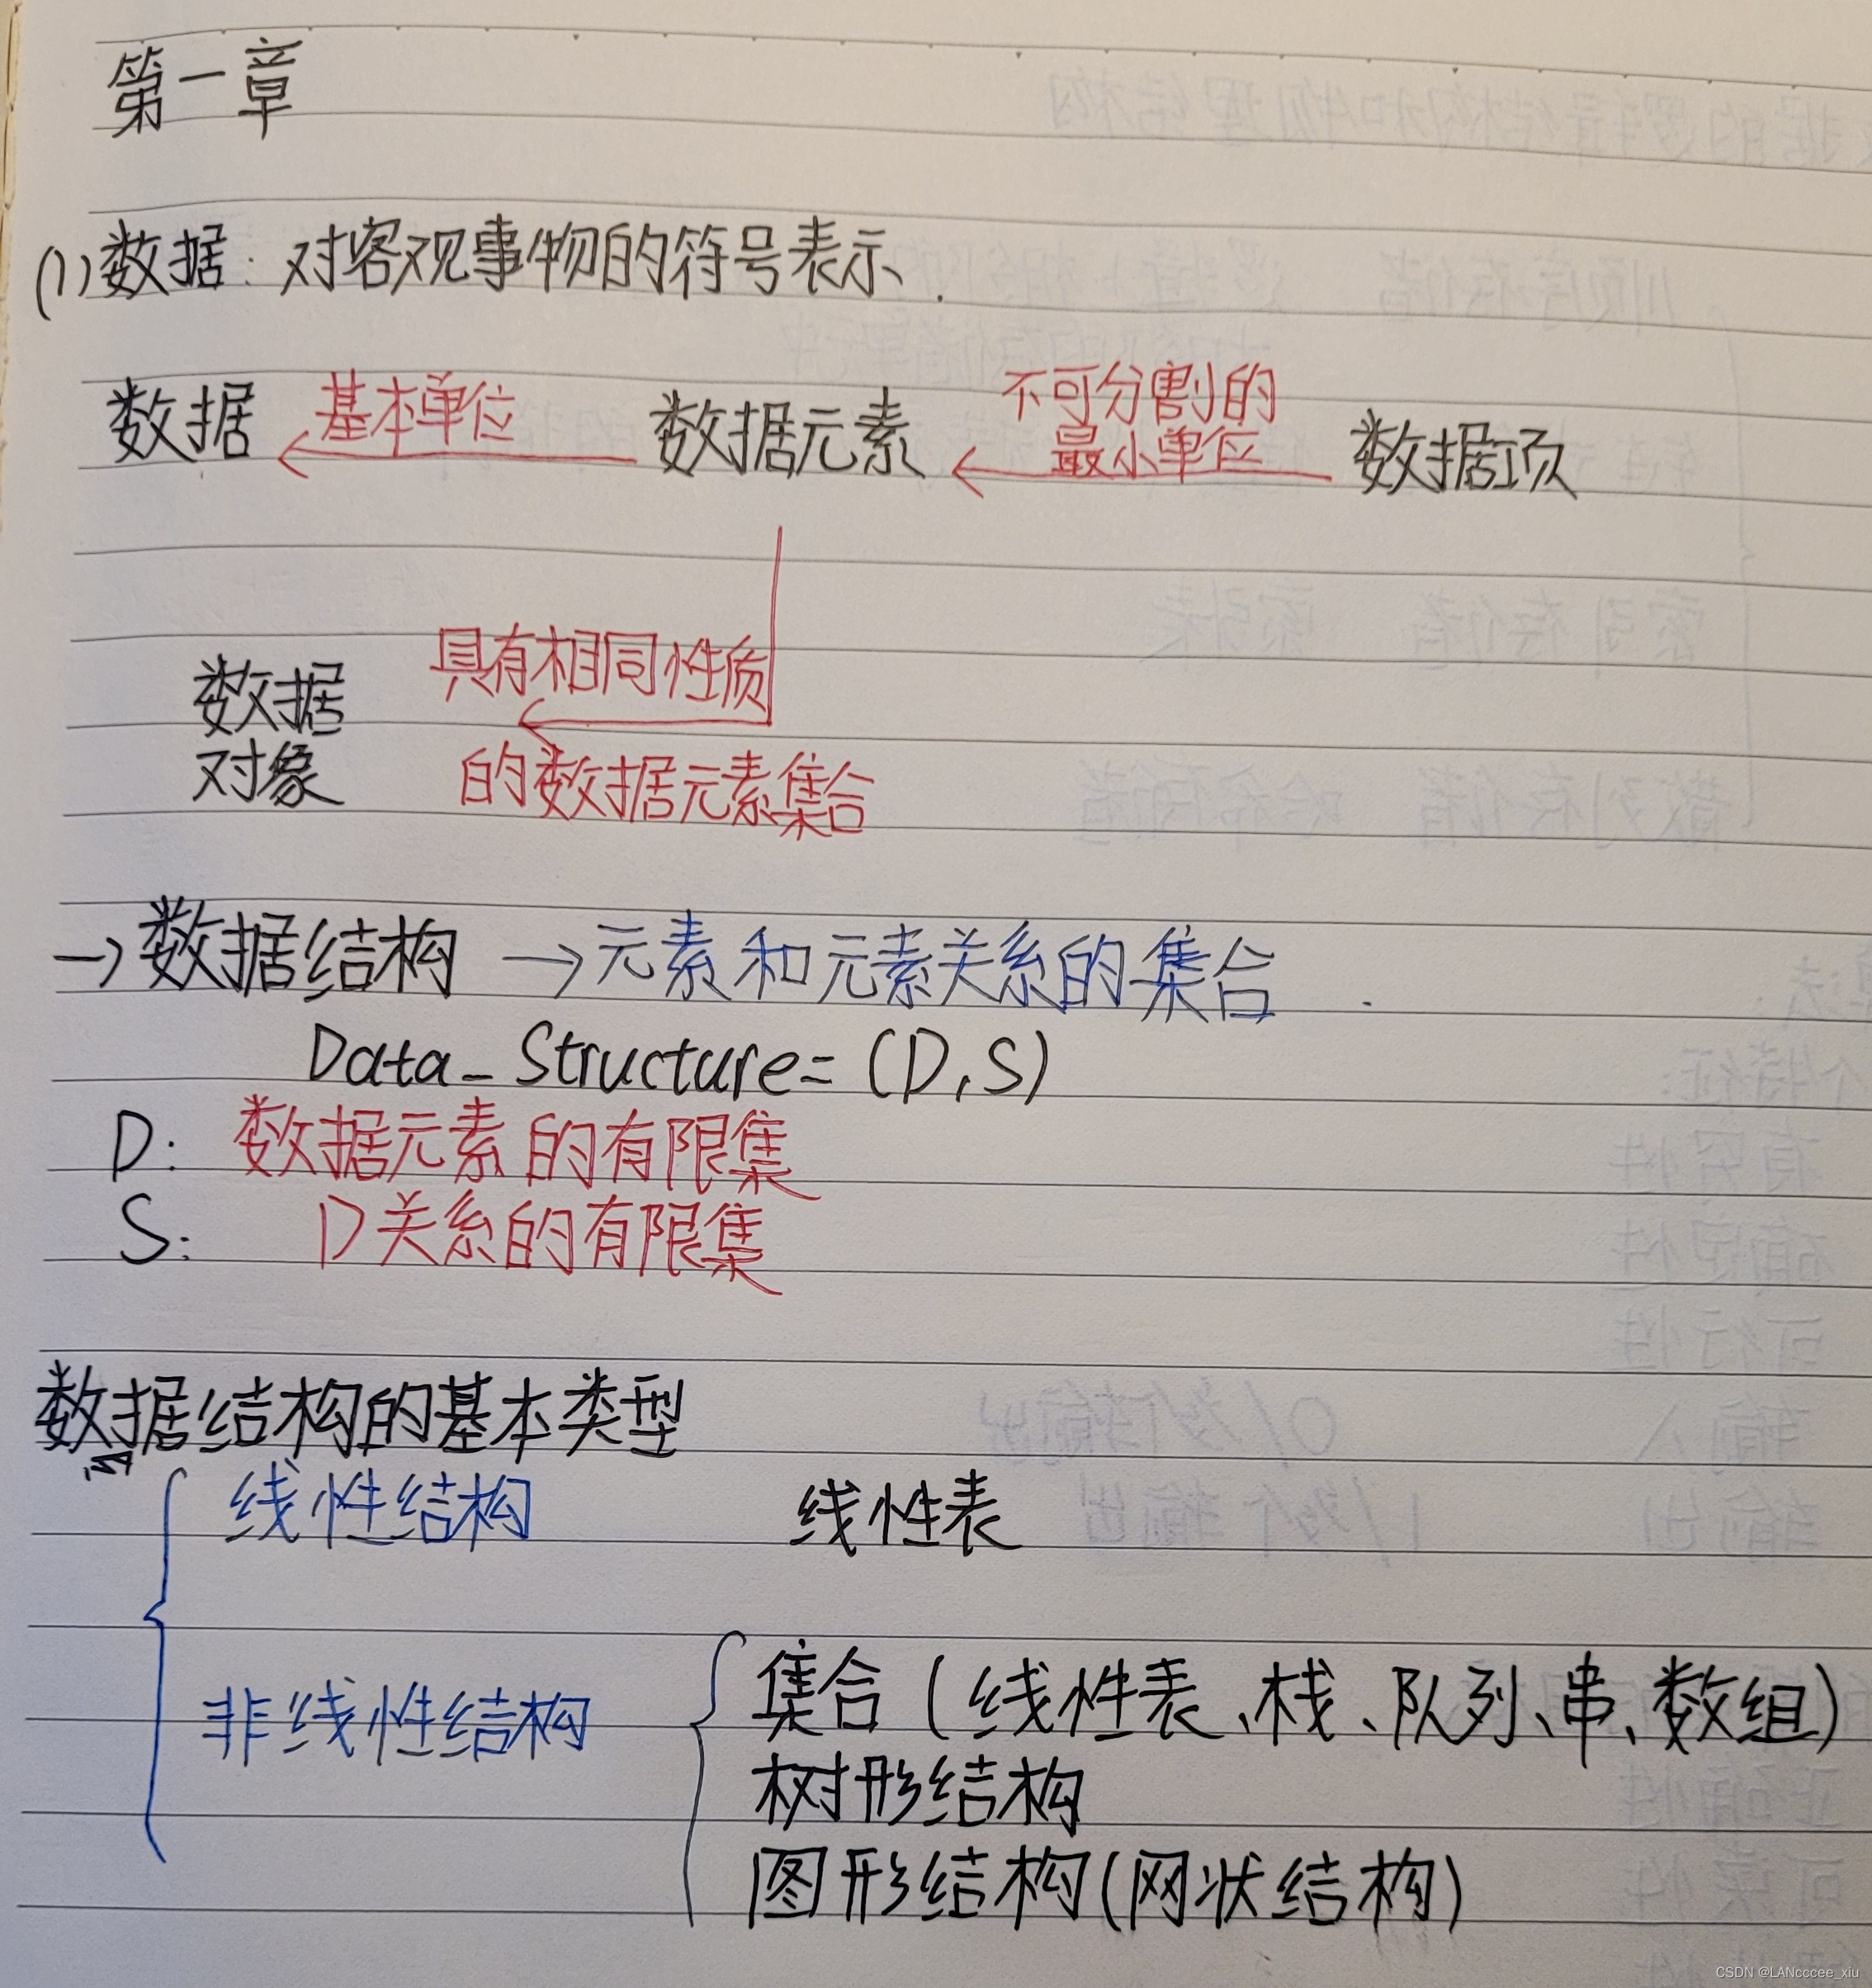 第一章
(1)数据：对客观事物的符号表示.
数据 ← 基本单位 数据元素 ← 不可分割的最小单位 数据项
数据对象 ← 具有相同性质的数据元素集合
→数据结构 →元素和元素关系的集合.
Data_Structure=(D,S)
D: 数据元素的有限集
S: D关系的有限集
数据结构的基本类型
线性结构 线性表
非线性结构
集合(线性表、栈、队列、串、数组)
树形结构
图形结构(网状结构)
CSDN @LANcccee_xiu